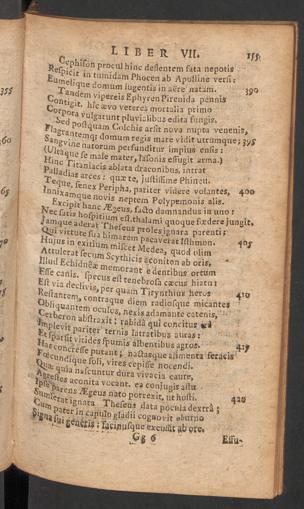 LIBER VII. 155
Cephison procul hinc deflentem fata nepotis
Respicit in tumidam Phocen ab Apolline versi:
Eumelique domum lugentis in aëre natam. 390
Tandem vipereis Ephyren Pirenida pennis
Contigit. hic ævo veteres mortalia primo
Corpora vulgarunt pluvialibus edita fungis.
Sed postquam Colchis arsit nova nupta venenis,
Flagrantemque domum regis mare vidit utrumque: 395
Sanguine natorum perfunditur impius ensis:
(Ultaque se male mater, Iasonis effugit arma.)
Hinc Titaniacis ablata draconibus, intrat
Palladias arces: quæ te, justissime Phineu.
Teque, senex Peripha, pariter videre volantes, 400
Innixamque novis neptem Polypemonis alis.
Excipit hanc Ægeus, facto damnandus in uno:
Nec satis hospitium est: thalami quoque fœdere jungit.
Jamque aderat Theseus proles ignara parenti:
Qui virtute sua bimarem pacaverat Isthmon. 405
Hujus in exitium miscet Medea, quod olim
Attulerat secum Scythicis aconiton ab oris,
Illud Echidnææ memorant e dentibus ortum
Esse canis. specus est tenebrosa cæcus hiatu:
Est via declivis, per quam Tirynthius heros 410
Restantem, contraque diem radiosque micantes
Obliquantem oculos, nexis adamante catenis,
Cerberon abstraxit: rabida qui concitus
Implevit pariter ternis latratibus auras:
Et sparsit virides spumis albentibus agros. 415
Has concresse putant; nactasque alimenta feracis
Fœcundique soli, vires cepisse nocendi.
Quæ quia nascuntur dura vivacia caute,
Agrestes aconita vocant. ea conjugis astu
Ipse parens Ægeus nato porrexit, ut hosti. 420
Sumserat ignara Theseus data pocula dextra;
Cum pater in capulo gladii cognovit eburno
Signa sui generis: facinusque excussit ab ore.
Gg 6 Effu-
355
360
365